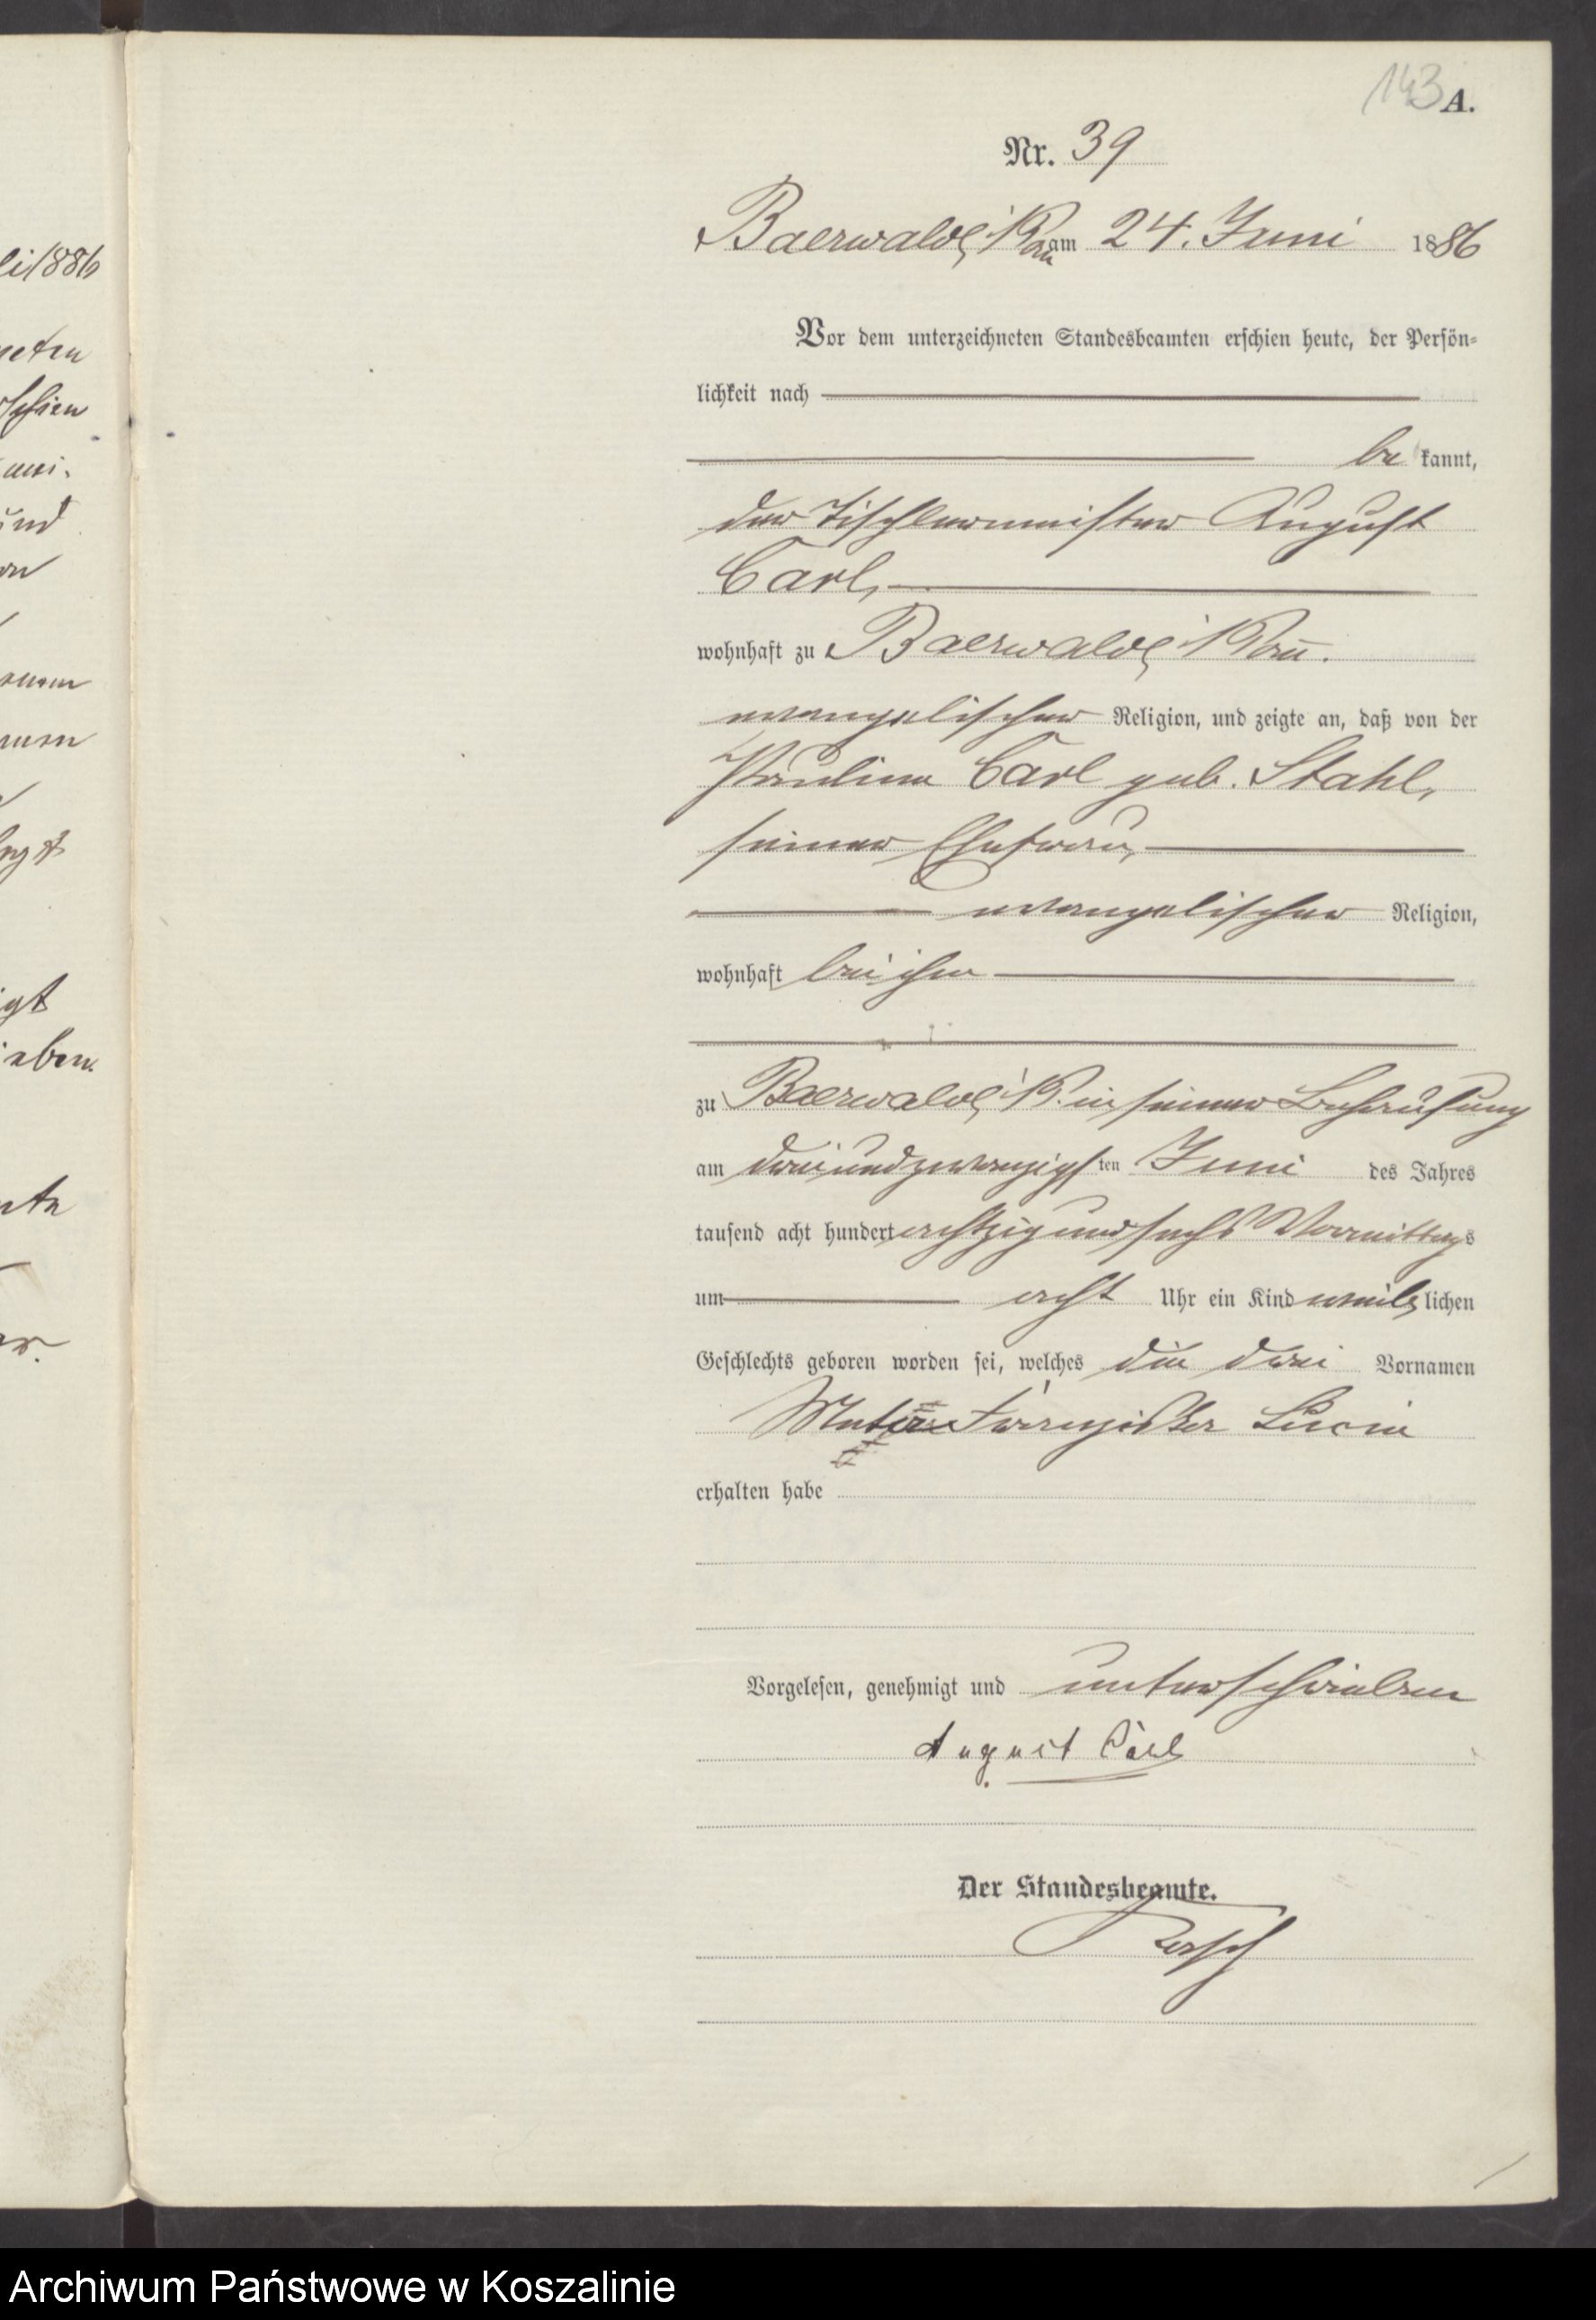 li 1886
143 A.
Nr. 39
Baerwalde, i/Pom am 24. Juni 1886
Vor dem unterzeichneten Standesbeamten erschien heute, der Persön-
lichkeit nach
be kannt,
der Tischlermeister August
Carl,
wohnhaft zu Baerwalde, i/Pom.
evangelischer Religion, und zeigte an, daß von der
Pauline Carl geb. Stahl,
seiner Ehefrau,
evangelischer Religion,
wohnhaft bei ihm
zu Baerwalde, i/P. in seiner Behausung
am dreiundzwanzigsten Juni des Jahres
tausend acht hundert achtzig und sechs Vormittags
um acht Uhr ein Kind weiblichen
Geschlechts geboren worden sei, welches die drei Vornamen
Lucie
erhalten habe
Vorgelesen, genehmigt und unterschrieben
August Carl
Der Standesbeamte.
Archiwum Państwowe w Koszalinie